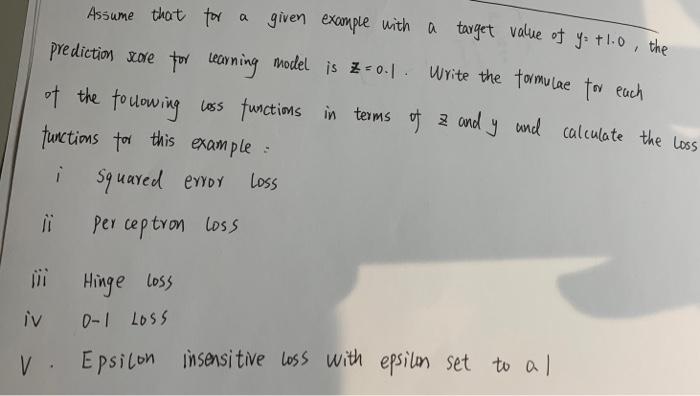 Assume that for a given example with a target value of y = +1.0, the
prediction score for learning model is z = 0.1. Write the formulae for each
of the following loss functions in terms of z and y and calculate the loss
functions for this example :
i squared error loss
ii perceptron loss
iii Hinge loss
iv 0-1 Loss
V. Epsilon insensitive loss with epsilon set to a1